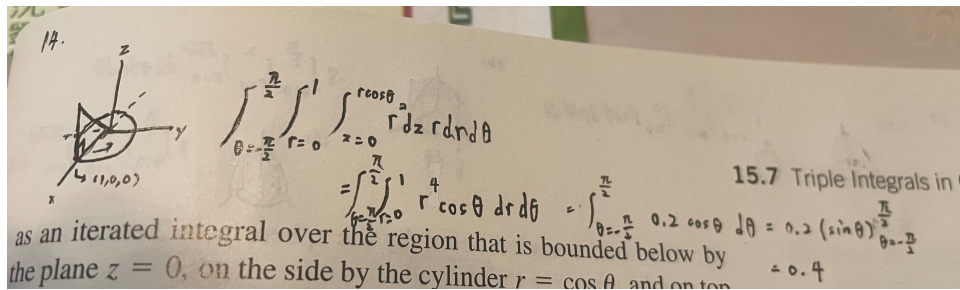 14.
z
y
x
(1,0,0)
∫_{θ=-π/2}^{π/2} ∫_{r=0}^{1} ∫_{z=0}^{rcosθ} r² dz r dr dθ
= ∫_{θ=-π/2}^{π/2} ∫_{r=0}^{1} r⁴ cosθ dr dθ = ∫_{θ=-π/2}^{π/2} 0.2 cosθ dθ = 0.2 (sinθ)_{θ=-π/2}^{π/2}
= 0.4
15.7 Triple Integrals in
as an iterated integral over the region that is bounded below by
the plane z = 0, on the side by the cylinder r = cos θ, and on top